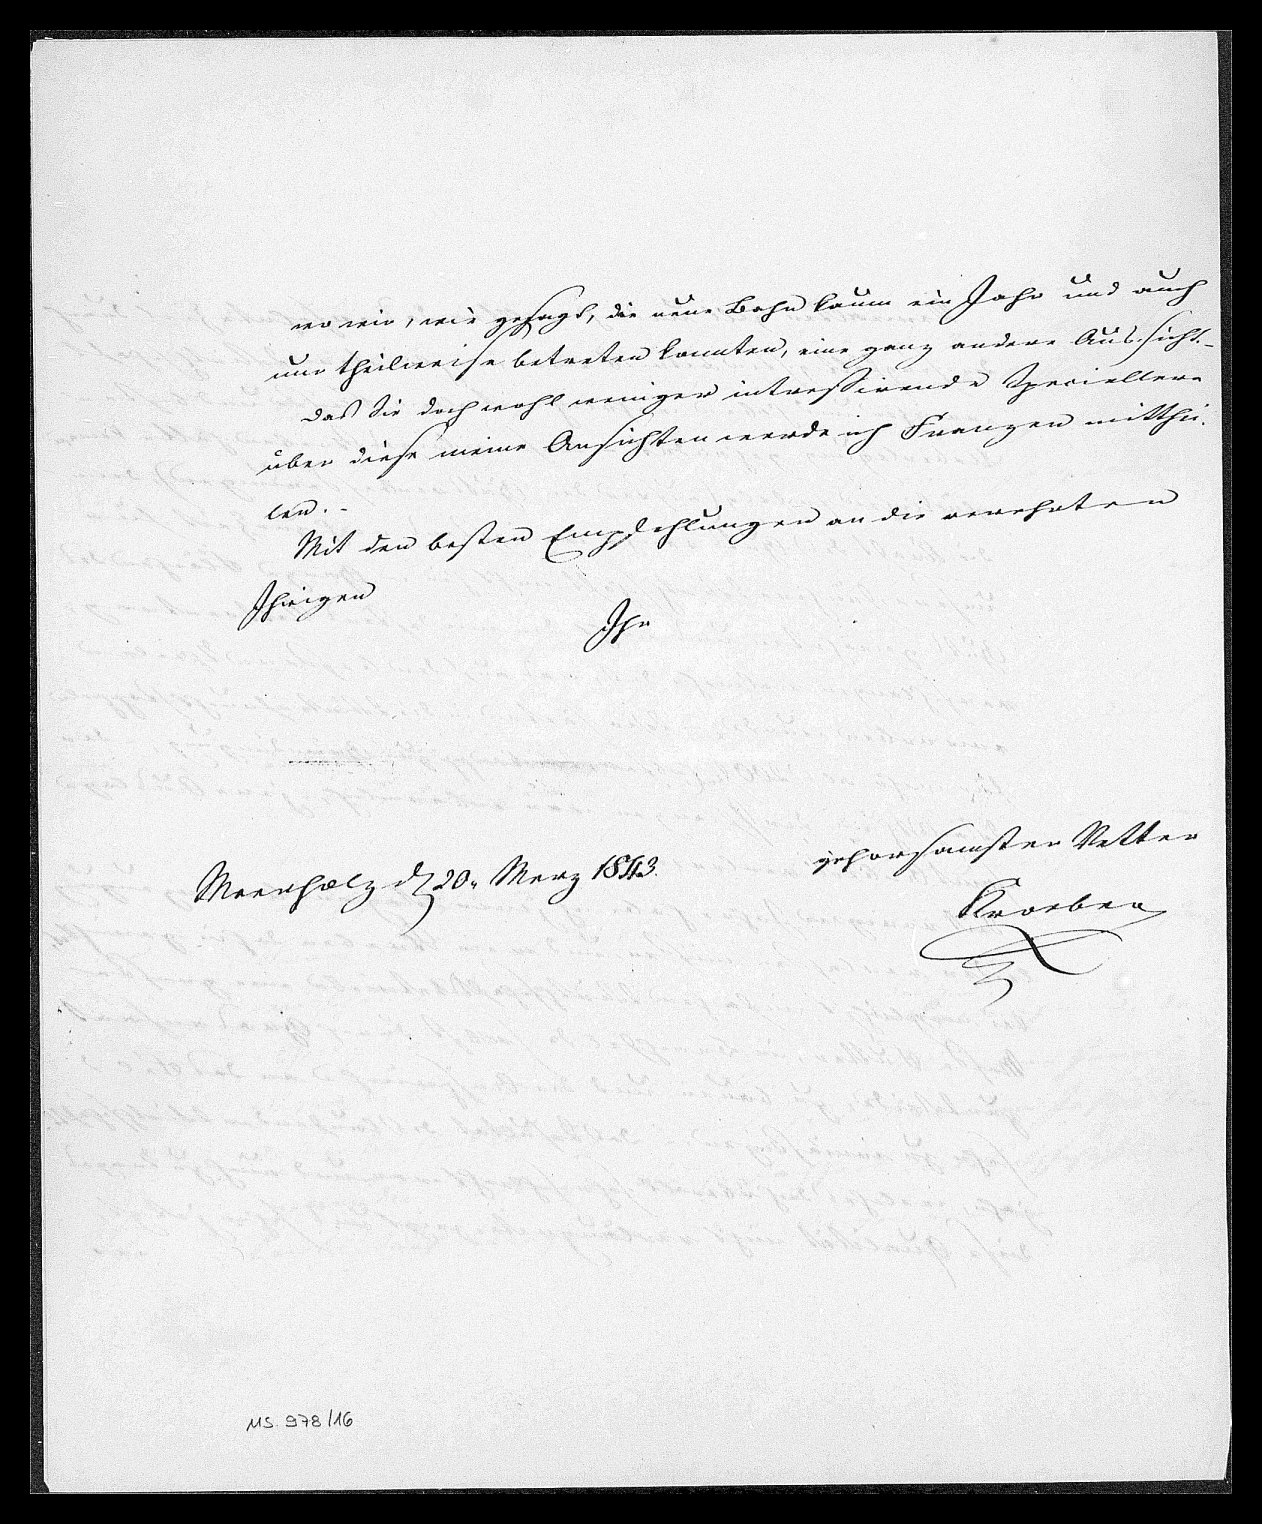 wo wir, wie gesagt, die neue Bahn kaum ein Jahr und auch
nur theilweise betreten konnten, eine ganz andere Aussicht. –
Das Sie doch wohl weniger intressirende Speciellere
über diese meine Ansichten werde ich Franzen mitthei-
len. –
Mit den besten Empfehlungen an die verehrten
Ihrigen
Ihr
gehorsamster Vetter
Meerholz d 20. Merz 1843.
Kroeber
MS 978/16